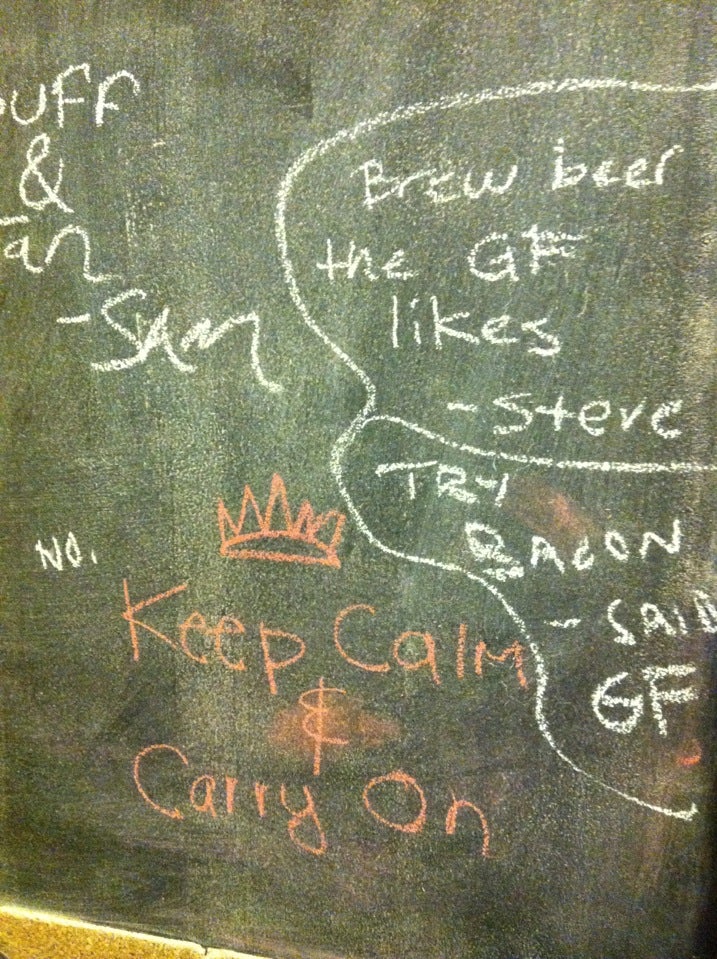 &
-Sam
Brew beer
the GF
likes
-Steve
TRY
BACON
- SAID
GF
NO.
Keep Calm
&
Carry On